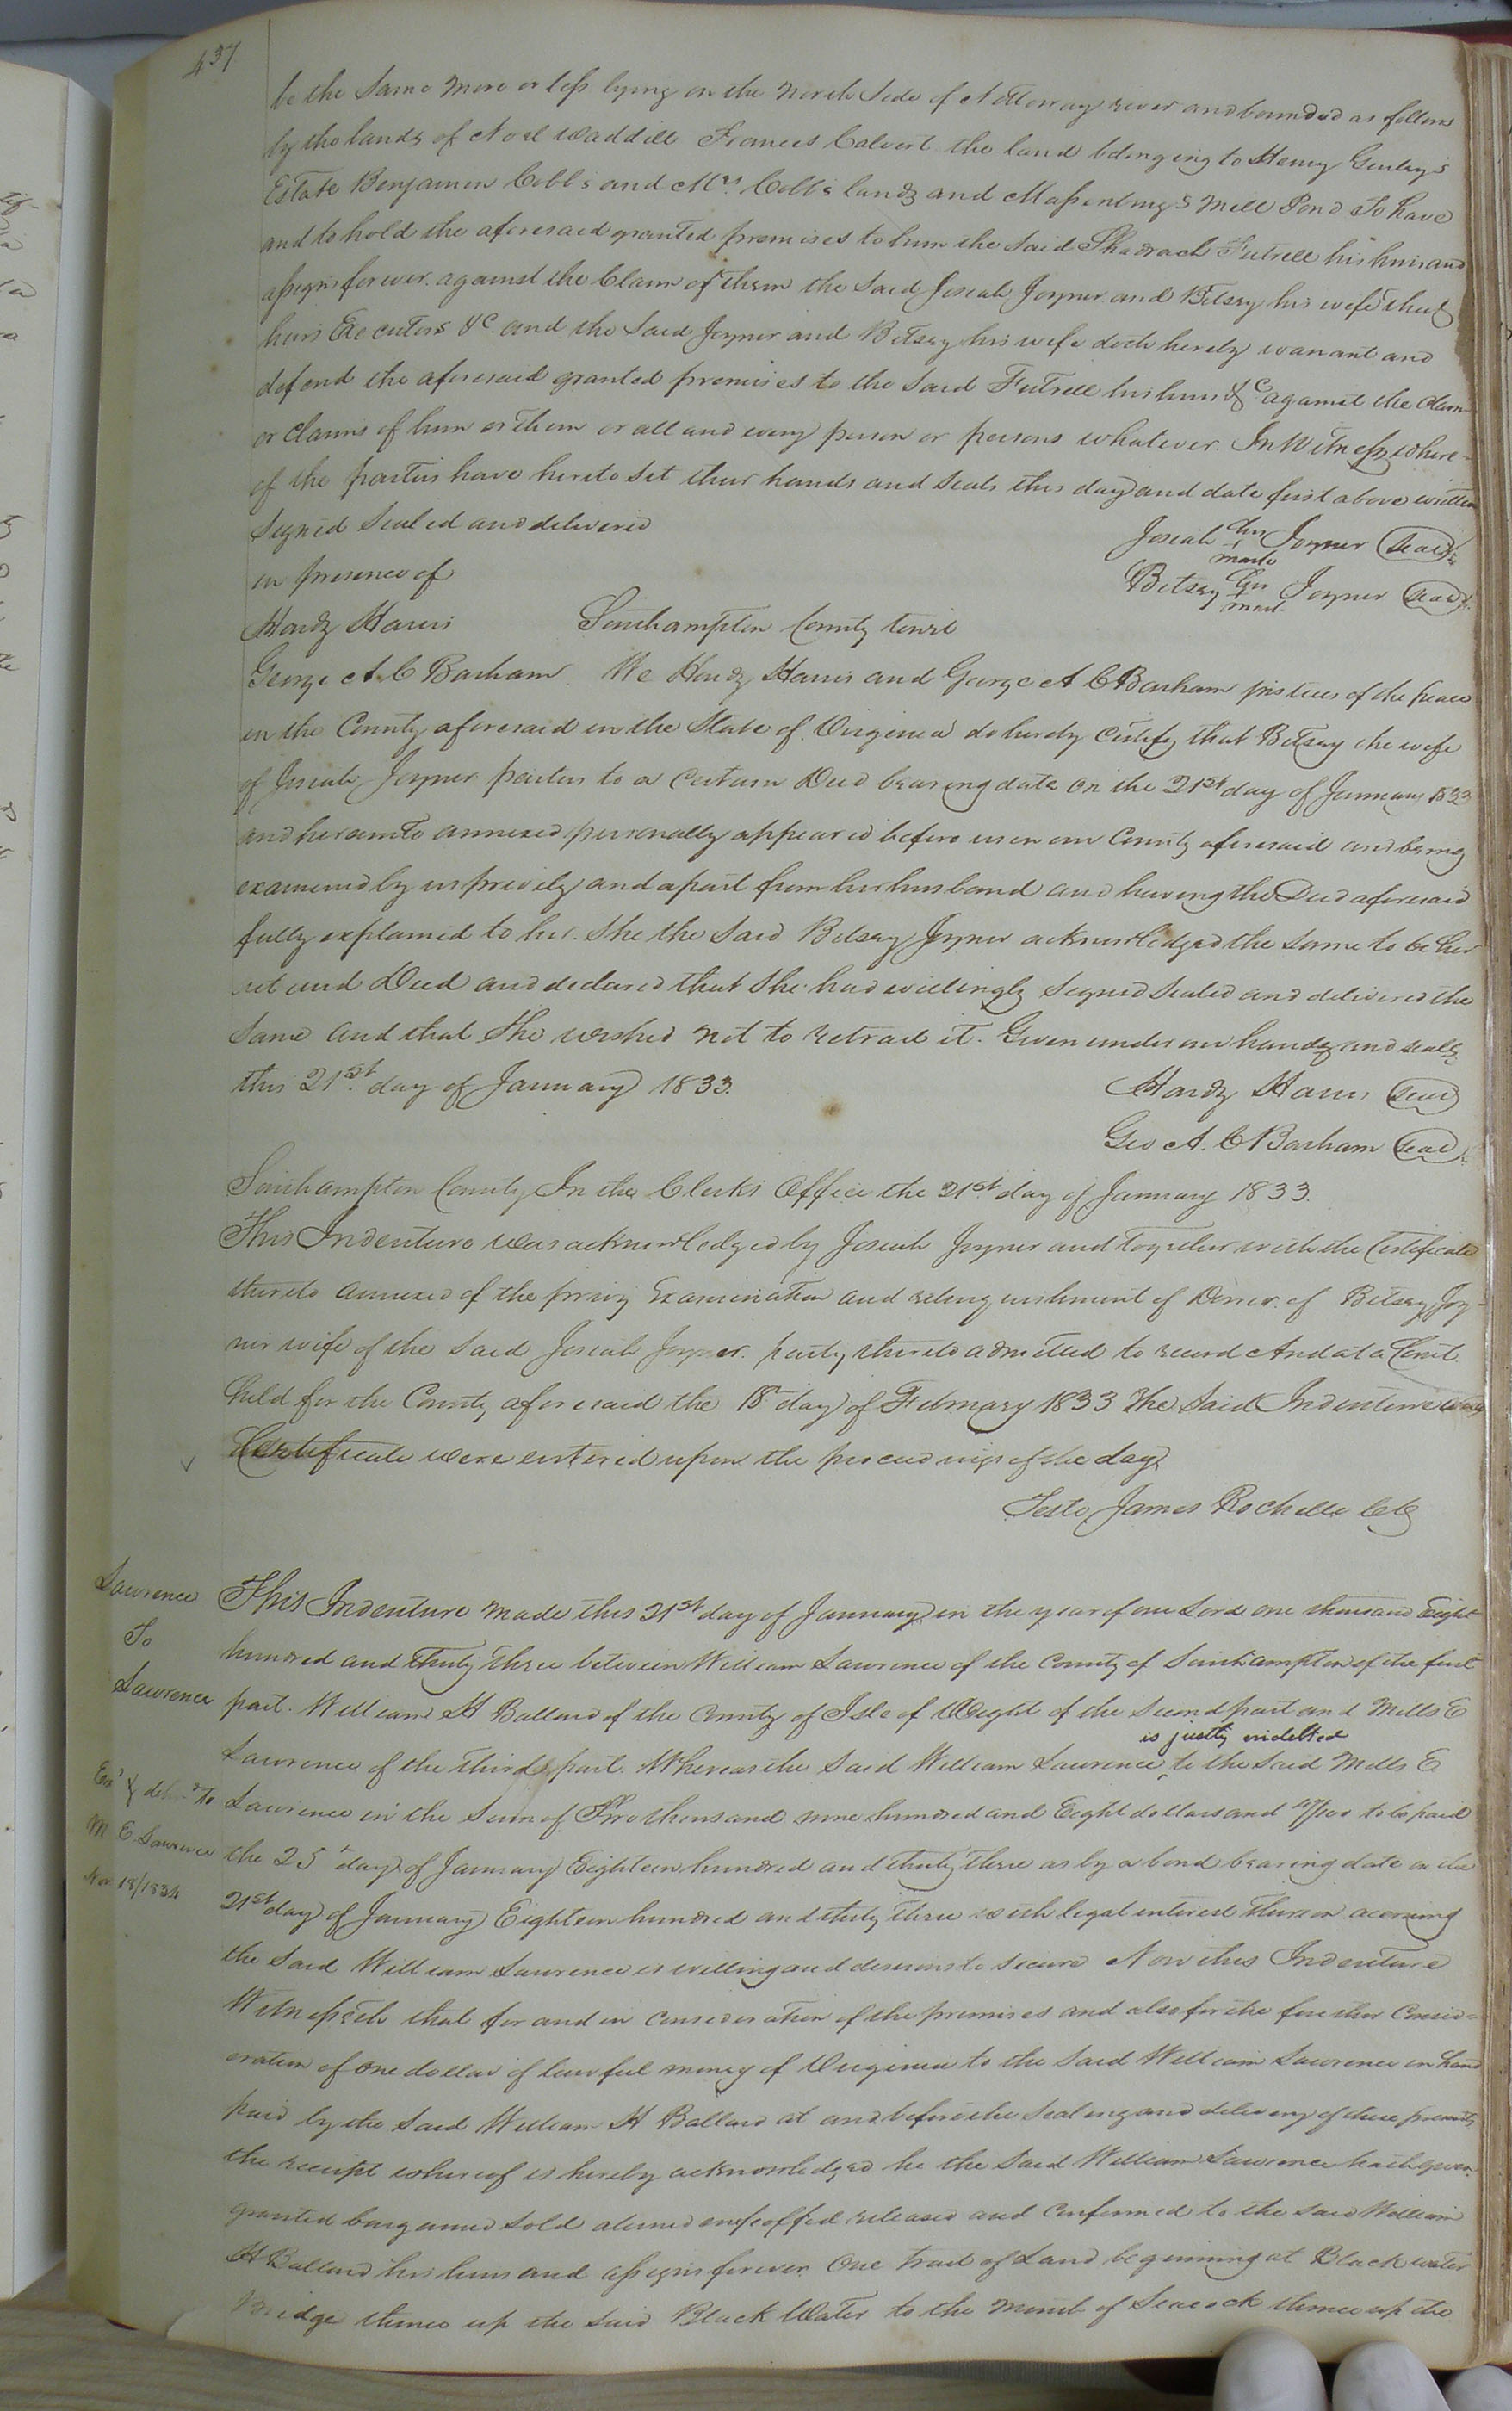 437
be the same more or less lying on the North Side of Nottoway river and bounded as follows
by the lands of Noel Waddill Frances Calvert the land belonging to Henry Gurley's
Estate Benjamin Cobb's and Mrs Cobb's lands and Massenburg's Mill Pond To have
and to hold the aforesaid granted premises to him the said Shadrach Futrell his heirs and
assigns forever against the Claim of them the said Josiah Joyner and Betsey his wife their
heirs Executors &c and the said Joyner and Betsey his wife doth hereby warrant and
defend the aforesaid granted premises to the said Futrell his heirs &c against the claim
or claims of him or them or all and every person or persons whatever. In Witness where-
of the parties have hereto set their hands and seals this day and date first above written
Signed Sealed and delivered
Josiah his + mark Joyner (seal)
in presence of
Betsey her + mark Joyner (seal)
Hardy Harris Southampton County towit
George A. C Barham We Hardy Harris and George A C Barham justices of the peace
in the County aforesaid in the State of Virginia do hereby certify that Betsey the wife
of Josiah Joyner parties to a certain Deed bearing date on the 21st day of January 1833
and hereunto annexed personally appeared before us in our County aforesaid and being
examined by us privily and apart from her husband and having the Deed aforesaid
fully explained to her. She the said Betsey Joyner acknowledged the same to be her
act and Deed and declared that she had willingly signed sealed and delivered the
same and that she wished not to retract it. Given under our hands and seals
this 21st day of January 1833.
Hardy Harris (seal)
Geo A. C Barham (seal)
Southampton County In the Clerks Office the 21st day of January 1833.
This Indenture was acknowledged by Josiah Joyner and together with the Certificate
thereto annexed of the privy Examination and relinquishment of Dower of Betsey Joy-
ner wife of the said Josiah Joyner party thereto admitted to record And at a Court
held for the County aforesaid the 18th day of February 1833 The said Indenture and
Certificate were entered upon the proceedings of the day
Teste James Rochelle Clk
Lawrence
To
Lawrence
Exd & delivd to
M E Lawrence
Nov 18/1834
This Indenture made this 21st day of January in the year of our Lord one thousand Eight
hundred and thirty three between William Lawrence of the County of Southampton of the first
part. William H Ballard of the County of Isle of Wight of the second part and Mills E
Lawrence of the third part. Whereas the said William Lawrence ^is justly indebted to the said Mills E
Lawrence in the sum of Two thousand nine hundred and Eight dollars and /100 to be paid
the 25th day of January Eighteen hundred and thirty three as by a bond bearing date on the
21st day of January Eighteen hundred and thirty three with legal interest thereon accruing
the said William Lawrence is willing and desirous to secure Now this Indenture
Witnesseth that for and in consideration of the premises and also for the further Consid-
eration of one dollar of lawful money of Virginia to the said William Lawrence in hand
paid by the said William H Ballard at and before the sealing and delivery of these presents
the receipt whereof is hereby acknowledged he the said William Lawrence hath given
granted bargained sold aliened enfeoffed released and confirmed to the said William
H Ballard his heirs and assigns forever One tract of Land beginning at Black water
Bridge thence up the said Black Water to the mouth of Seacock thence up the